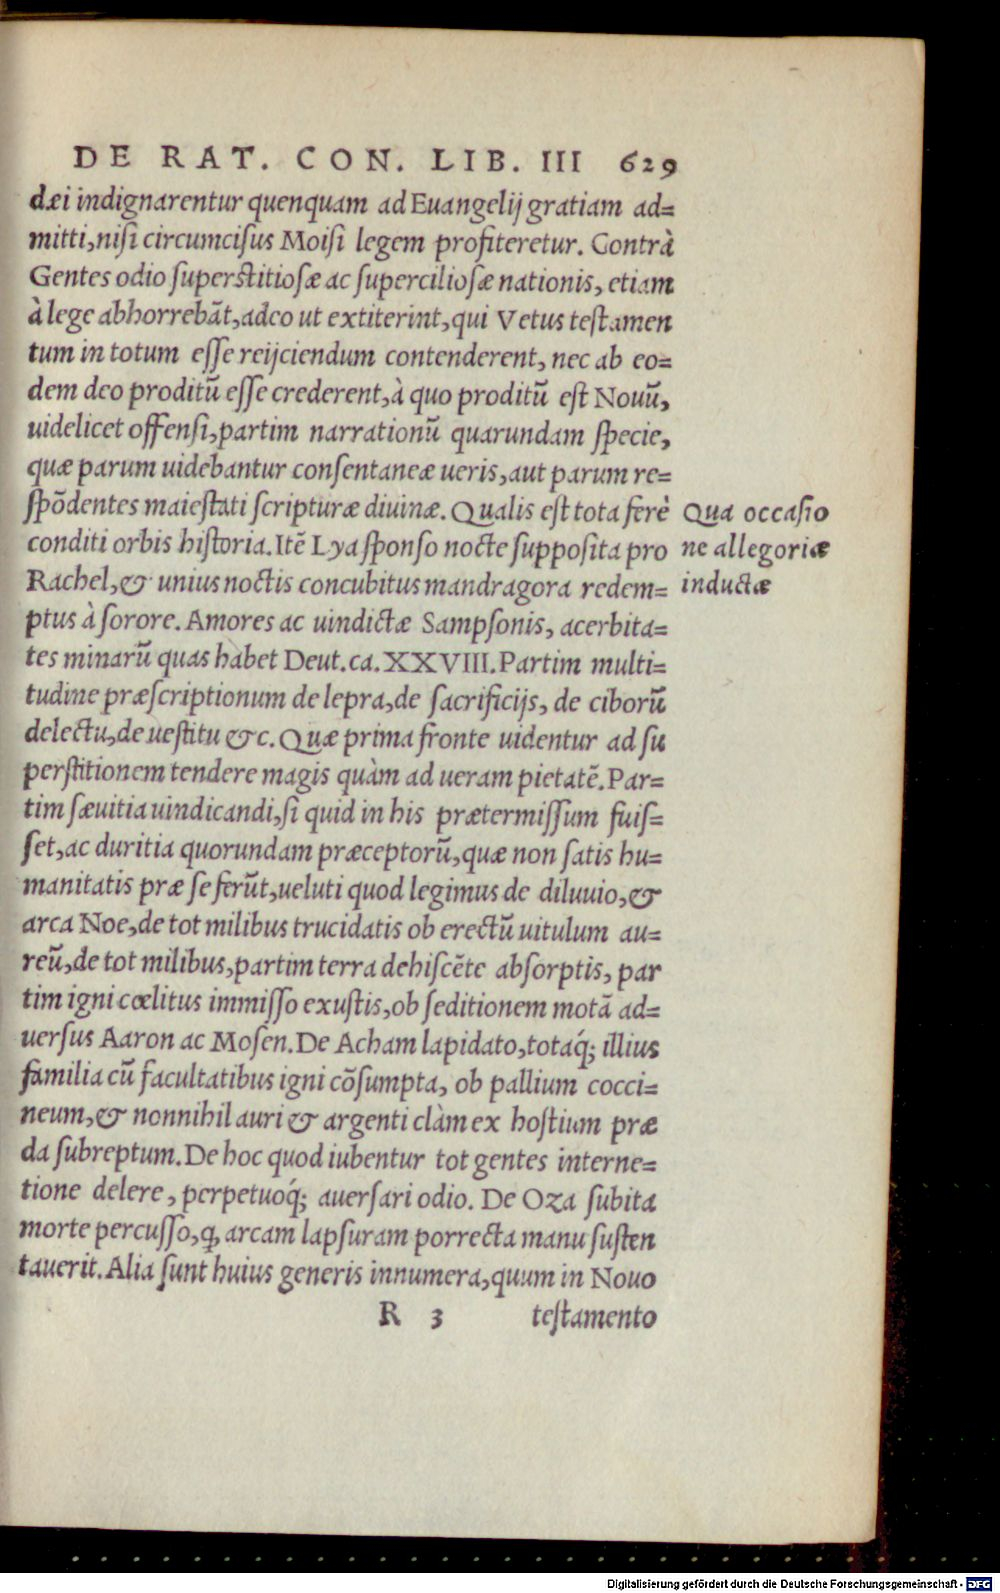 DE RAT. CON. LIB. III 629
dæi indignarentur quenquam ad Euangelij gratiam ad=
mitti, nisi circumcisus Moisi legem profiteretur. Contrà
Gentes odio superstitiosæ ac superciliosæ nationis, etiam
à lege abhorrebāt, adeo ut extiterint, qui Vetus testamen
tum in totum esse reijciendum contenderent, nec ab eo=
dem deo proditū esse crederent, à quo proditū est Nouū,
uidelicet offensi, partim narrationū quarundam specie,
quæ parum uidebantur consentaneæ ueris, aut parum re=
spōdentes maiestati scripturæ diuinæ. Qualis est tota ferè
conditi orbis historia. Itē Lya sponso nocte supposita pro
Rachel, & unius noctis concubitus mandragora redem=
ptus à sorore. Amores ac uindictæ Sampsonis, acerbita=
tes minarū quas habet Deut. ca. XXVIII. Partim multi=
tudine præscriptionum de lepra, de sacrificijs, de ciborū
delectu, de uestitu &c. Quæ prima fronte uidentur ad su
perstitionem tendere magis quàm ad ueram pietatē. Par=
tim sæuitia uindicandi, si quid in his prætermissum fuis=
set, ac duritia quorundam præceptorū, quæ non satis hu=
manitatis præ se ferūt, ueluti quod legimus de diluuio, &
arca Noe, de tot milibus trucidatis ob erectū uitulum au=
reū, de tot milibus, partim terra dehiscēte absorptis, par
tim igni cœlitus immisso exustis, ob seditionem motā ad=
uersus Aaron ac Mosen. De Acham lapidato, totaq́; illius
familia cū facultatibus igni cōsumpta, ob pallium cocci=
neum, & nonnihil auri & argenti clàm ex hostium præ
da subreptum. De hoc quod iubentur tot gentes interne=
tione delere, perpetuoq́; auersari odio. De Oza subita
morte percusso, ꝙ arcam lapsuram porrecta manu susten
tauerit. Alia sunt huius generis innumera, quum in Nouo
R 3 testamento
Qua occasio
ne allegoriæ
inductæ
Digitalisierung gefördert durch die Deutsche Forschungsgemeinschaft - DFG